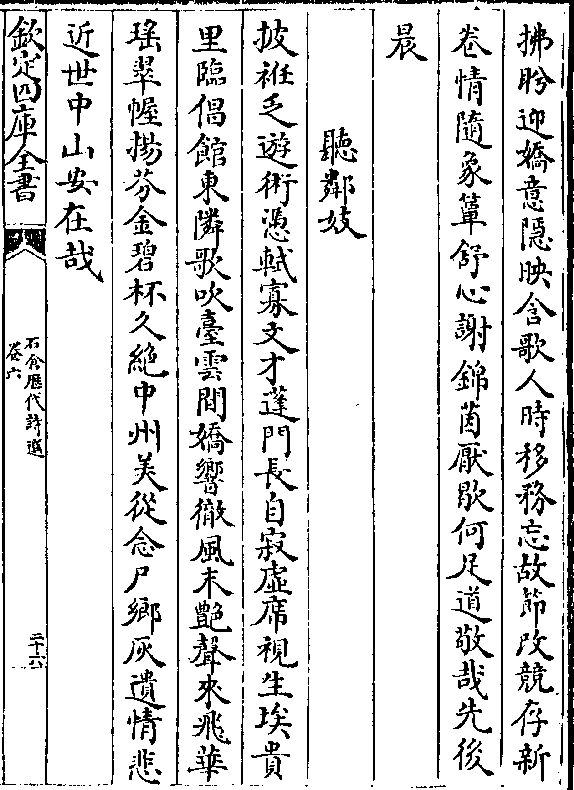 拂盻迎嬌意隱映含歌人時移務忘故節改競存新
卷情隨象簟舒心謝錦茵厭歇何足道敬哉先後
晨
聽鄰妓
披袵乏遊術憑軾寡文才蓬門長自寂虛席視生埃貴
里臨倡館東隣歌吹臺雲間嬌響徹風末艶聲來飛華
瑤翠幄揚芬金碧杯久絶中州美從念尸鄉灰遺情悲
近世中山安在哉
欽定四庫全書
石倉歷代詩選
卷六
二十六